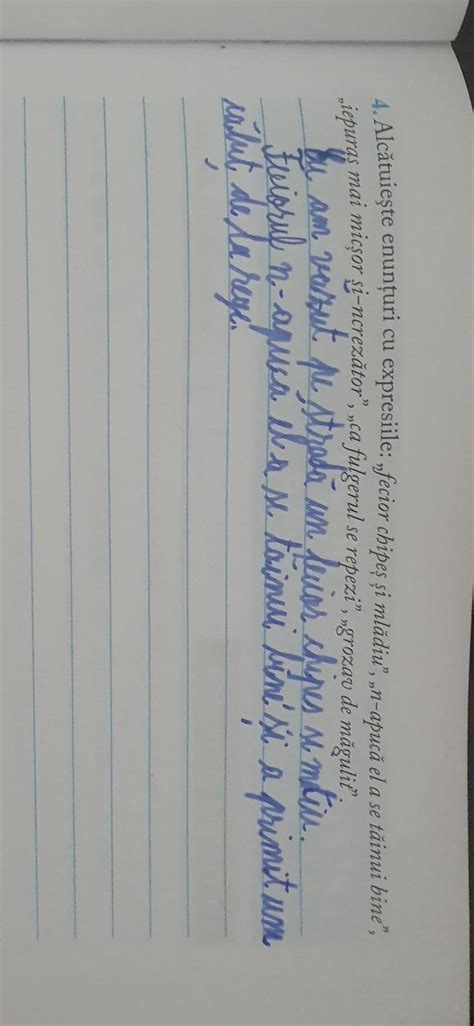 4. Alcătuiește enunțuri cu expresiile: „fecior chipeș și mlădiu”, „n-apucă el a se tăinui bine”,
„iepuraș mai micșor și-ncrezător”, „ca fulgerul se repezi”, „grozav de măgulit”
Eu am vazut pe stradă un fecior chipes si mldiu.
Feciorul n-apuca el a se tăinui bine și a primit un
sălut de la rege.